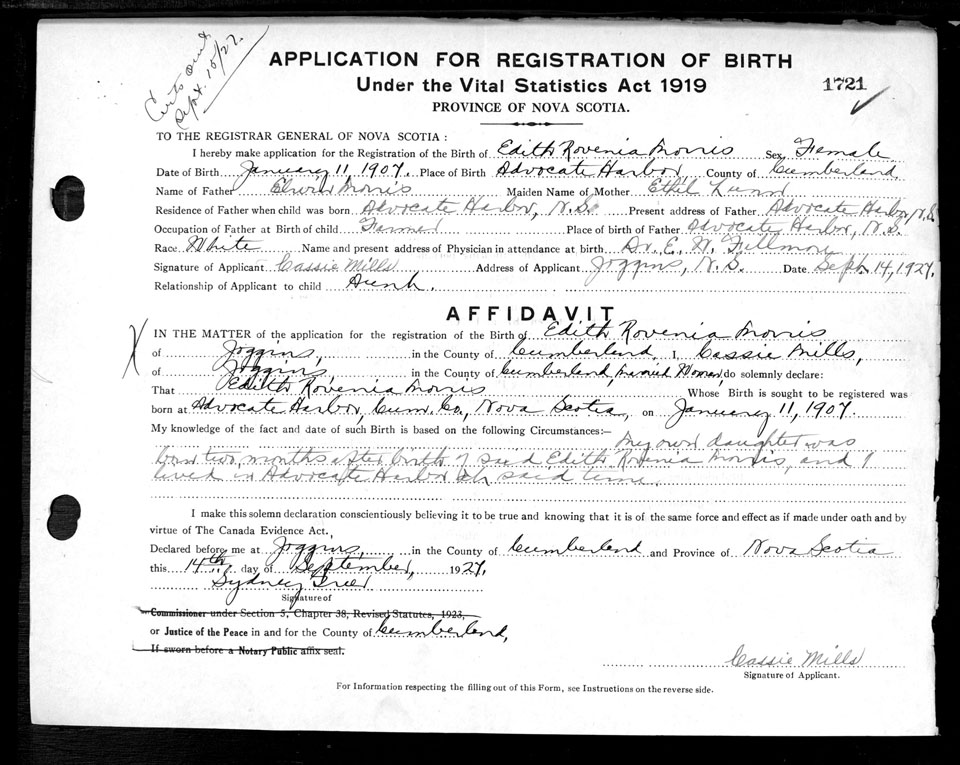 Sept. 15/27.
APPLICATION FOR REGISTRATION OF BIRTH
Under the Vital Statistics Act 1919
1721
PROVINCE OF NOVA SCOTIA.
TO THE REGISTRAR GENERAL OF NOVA SCOTIA :
I hereby make application for the Registration of the Birth of Edith Rovenia Morris Sex Female
Date of Birth January 11, 1907. Place of Birth Advocate Harbor County of Cumberland.
Name of Father Morris Maiden Name of Mother Ethel
Residence of Father when child was born Advocate Harbor, N.S. Present address of Father Advocate Harbor, N.S.
Occupation of Father at Birth of child Farmer Place of birth of Father Advocate Harbor, N.S.
Race White Name and present address of Physician in attendance at birth Dr. E. Fillmore
Signature of Applicant Cassie Mills Address of Applicant Joggins, N.S. Date Sept. 14, 1927.
Relationship of Applicant to child Aunt.
AFFIDAVIT
IN THE MATTER of the application for the registration of the Birth of Edith Rovenia Morris
of Joggins, in the County of Cumberland, I, Cassie Mills,
of Joggins in the County of Cumberland, Married Woman, do solemnly declare:
That Edith Rovenia Morris Whose Birth is sought to be registered was
born at Advocate Harbor, Cum. Co., Nova Scotia, on January 11, 1907.
My knowledge of the fact and date of such Birth is based on the following Circumstances:— My own daughter was
born two months after birth of said Edith Rovenia Morris, and I
lived in Advocate Harbor at said time.
I make this solemn declaration conscientiously believing it to be true and knowing that it is of the same force and effect as if made under oath and by
virtue of The Canada Evidence Act.
Declared before me at Joggins, in the County of Cumberland and Province of Nova Scotia
this 14th day of September, 1927.
Sydney
Signature of
Commissioner under Section 5, Chapter 38, Revised Statutes, 1923,
or Justice of the Peace in and for the County of Cumberland,
If sworn before a Notary Public affix seal.
Cassie Mills
Signature of Applicant.
For Information respecting the filling out of this Form, see Instructions on the reverse side.